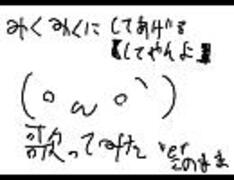 みくみくに してあげる
【してやんよ】
歌ってみた ver
このまま